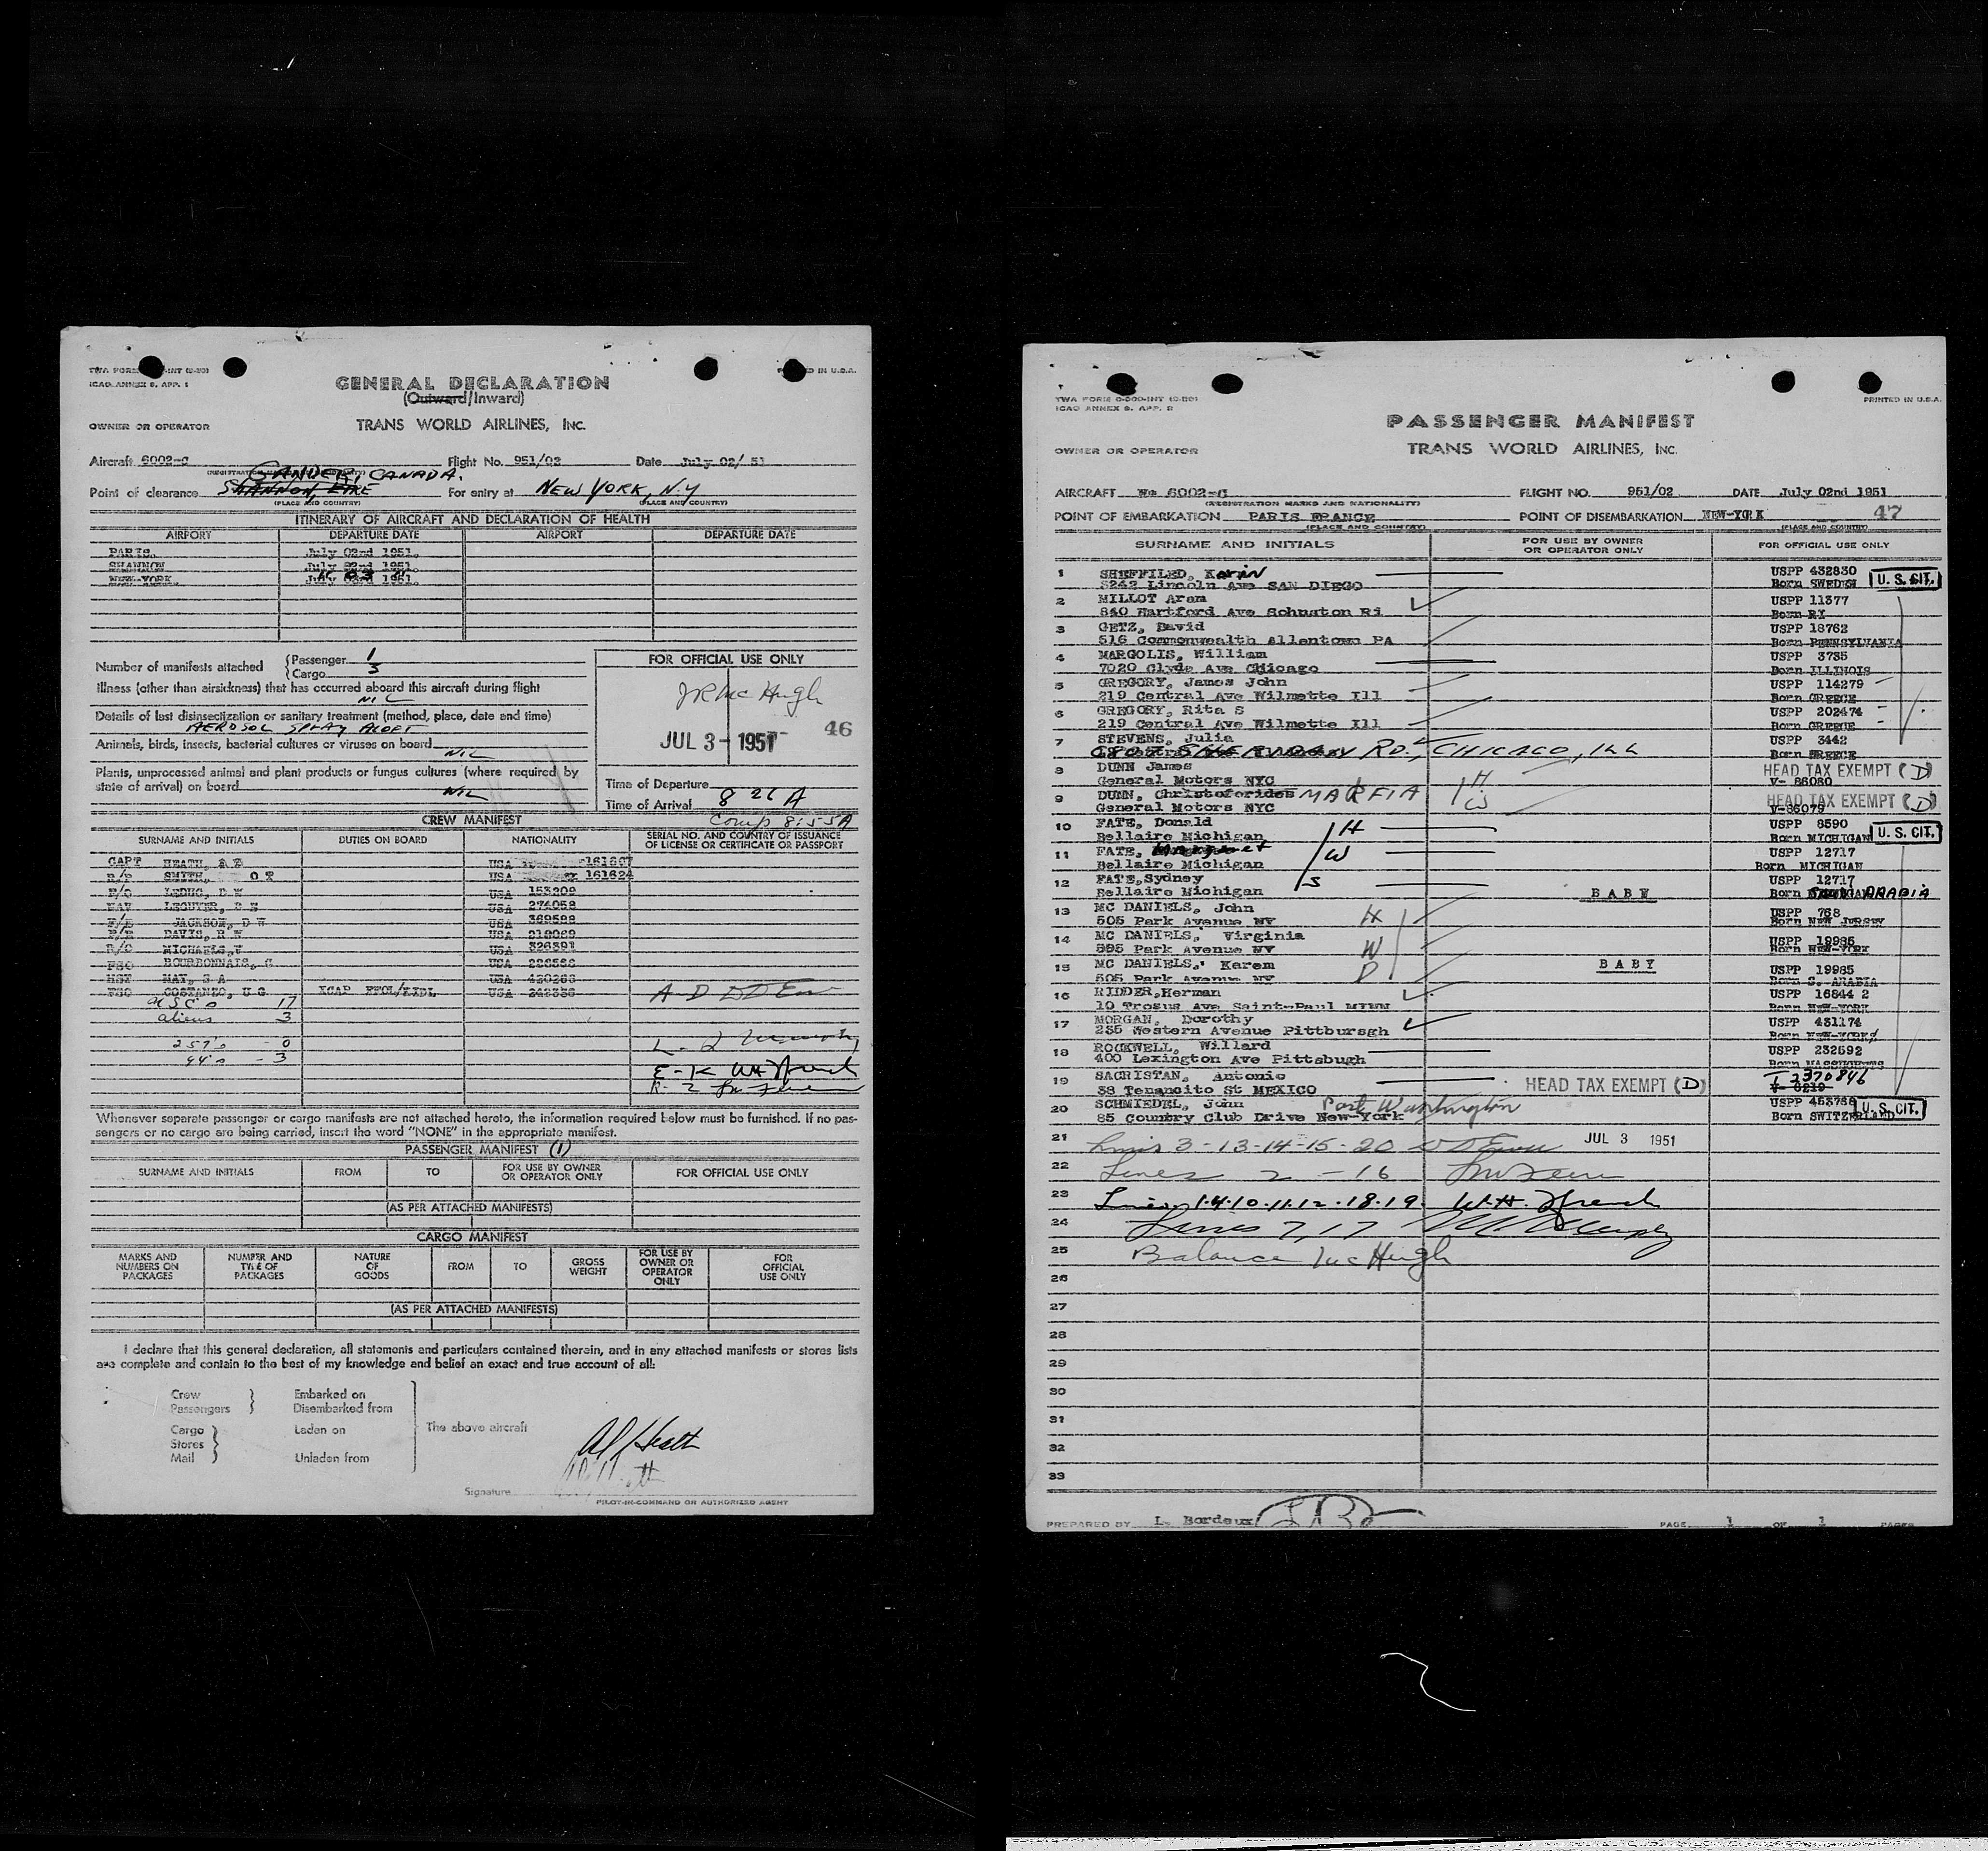 TWA FORM INT (2-50)
ICAO ANNEX 9, APP. 1
IN U.S.A.
GENERAL DECLARATION
(Outward/Inward)
OWNER OR OPERATOR
TRANS WORLD AIRLINES, INC.
Aircraft 6002-C Flight No. 951/02 Date July 02/ 51
GANDER, CANADA.
Point of clearance SHANNON, EIRE For entry at NEW YORK, N.Y
(PLACE AND COUNTRY) (PLACE AND COUNTRY)
ITINERARY OF AIRCRAFT AND DECLARATION OF HEALTH
AIRPORT DEPARTURE DATE AIRPORT DEPARTURE DATE
PARIS. July 02nd 1951.
SHANNON July 02nd 1951.
NEW-YORK. July 03rd 1951.
Number of manifests attached {Passenger 1
{Cargo 3
Illness (other than airsickness) that has occurred aboard this aircraft during flight
NIL
Details of last disinsectization or sanitary treatment (method, place, date and time)
AEROSOL SPRAY ALOFT
Animals, birds, insects, bacterial cultures or viruses on board NIL
Plants, unprocessed animal and plant products or fungus cultures (where required by
state of arrival) on board NIL
FOR OFFICIAL USE ONLY
JR McHugh
46
JUL 3 - 1951
Time of Departure
Time of Arrival 8 26 A
Comp 8:55A
CREW MANIFEST
SURNAME AND INITIALS DUTIES ON BOARD NATIONALITY SERIAL NO. AND COUNTRY OF ISSUANCE
OF LICENSE OR CERTIFICATE OR PASSPORT
CAPT HEATH, USA 161607
SMITH, O R USA 161624
F/O LEDUC, D W USA 153209
NAV USA 274058
F/E JACKSON, D W USA 369588
F/E DAVIS, R W USA 218069
R/O MICHAELS, USA 326391
BOURBONNAIS, USA
MAY, S A USA 420266
COSTANZO, U G USA
USC's 17
aliens 3
257's - 0
94's - 3
Whenever separate passenger or cargo manifests are not attached hereto, the information required below must be furnished. If no pas-
sengers or no cargo are being carried, insert the word "NONE" in the appropriate manifest.
PASSENGER MANIFEST (1)
SURNAME AND INITIALS FROM TO FOR USE BY OWNER
OR OPERATOR ONLY FOR OFFICIAL USE ONLY
(AS PER ATTACHED MANIFESTS)
CARGO MANIFEST
MARKS AND
NUMBERS ON
PACKAGES NUMBER AND
TYPE OF
PACKAGES NATURE
OF
GOODS FROM TO GROSS
WEIGHT FOR USE BY
OWNER OR
OPERATOR
ONLY FOR
OFFICIAL
USE ONLY
(AS PER ATTACHED MANIFESTS)
I declare that this general declaration, all statements and particulars contained therein, and in any attached manifests or stores lists
are complete and contain to the best of my knowledge and belief an exact and true account of all:
Crew } Embarked on
Passengers } Disembarked from
Cargo } Laden on The above aircraft
Stores }
Mail } Unladen from
Signature
PILOT-IN-COMMAND OR AUTHORIZED AGENT
TWA FORM 0-500-INT (2-50)
ICAO ANNEX 9, APP. 2
PRINTED IN U.S.A.
PASSENGER MANIFEST
OWNER OR OPERATOR
TRANS WORLD AIRLINES, INC.
AIRCRAFT 6002-C FLIGHT NO. 951/02 DATE July 02nd 1951
(REGISTRATION MARKS AND NATIONALITY)
POINT OF EMBARKATION PARIS FRANCE POINT OF DISEMBARKATION NEW-YORK 47
(PLACE AND COUNTRY) (PLACE AND COUNTRY)
SURNAME AND INITIALS FOR USE BY OWNER
OR OPERATOR ONLY FOR OFFICIAL USE ONLY
1 SHEFFILED, Karin USPP 432830
5242 Lincoln Ave SAN DIEGO Born SWEDEN U. S. CIT.
2 MILLOT Aram USPP 11377
840 Hartford Ave Rohnston Ri Born RI
3 GETZ, David USPP 18762
516 Commonwealth Allentown PA Born PENNSYLVANIA
4 MARGOLIS, William USPP 3735
7020 Clyde Ave Chicago Born ILLINOIS
5 GREGORY, James John USPP 114279
219 Central Ave Wilmette Ill Born GREECE
6 GREGORY, Rita S USPP 202474
219 Central Ave Wilmette Ill Born GREECE
7 STEVENS, Julia USPP 3442
SHERIDAN RD., CHICAGO, ILL Born GREECE
8 DUNN James HEAD TAX EXEMPT (D)
General Motors NYC H V- 86080
9 DUNN, Christoforides MARFIA W HEAD TAX EXEMPT (D)
General Motors NYC V-86079
10 FATE, Donald H USPP 8590
Bellaire Michigan Born MICHIGAN U. S. CIT.
11 FATE, Margaret W USPP 12717
Bellaire Michigan Born MICHIGAN
12 FATE, Sydney S USPP 12717
Bellaire Michigan BABY Born ARABIA
13 MC DANIELS, John H USPP 768
505 Park Avenue NY Born NEW JERSEY
14 MC DANIELS, Virginia W USPP 19985
505 Park Avenue NY Born NEW-YORK
15 MC DANIELS, Karem D BABY USPP 19985
505 Park Avenue NY Born S. ARABIA
16 RIDDER, Herman USPP 16844 2
10 Trosus Ave Saint-Paul MINN Born NEW-YORK
17 MORGAN, Dorothy USPP 431174
235 Western Avenue Pittbursgh Born NEW-YORK
18 ROCKWELL, Willard USPP 232592
400 Lexington Ave Pittsbugh Born MASSCHUETS
19 SACRISTAN, Antonio HEAD TAX EXEMPT (D) I 2370846
38 Tenancito St MEXICO V- 8219
20 SCHMIEDEL, John Port Washington USPP 453788
85 Country Club Drive New-York Born SWITZERLAND U. S. CIT.
21 Lines 3-13-14-15-20 JUL 3 1951
22 Lines 2 - 16
23 Lines 1.4.10.11.12.18.19. W.H. French
24 Lines 7, 17
25 Balance McHugh
26
27
28
29
30
31
32
33
PREPARED BY L. Bordeux PAGE 1 OF 1 PAGES